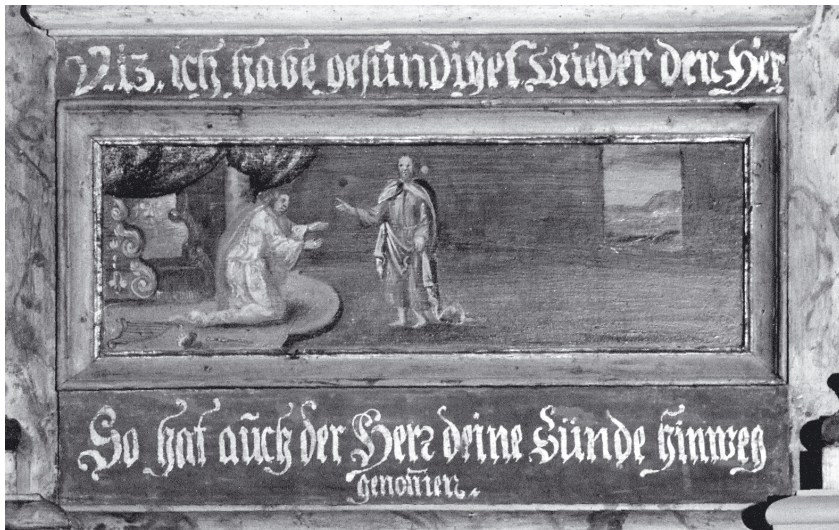 V. 13. ich habe gesündiget wieder den Her
So hat auch der Herr deine Sünde hinweg
genom̄en.